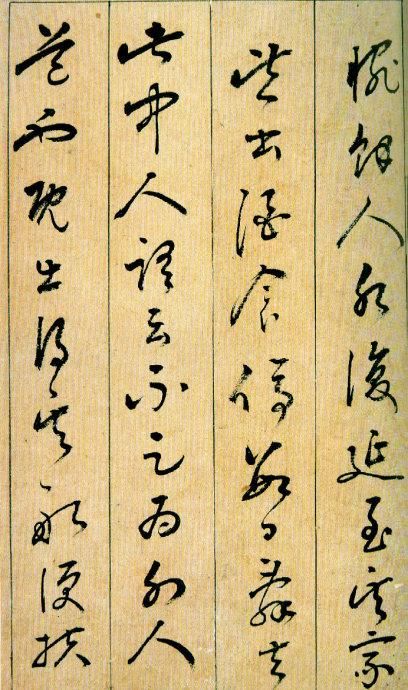 惋余人各復延至其家
皆出酒食停數日辭去
此中人語云不足為外人
道也既出得其船便扶